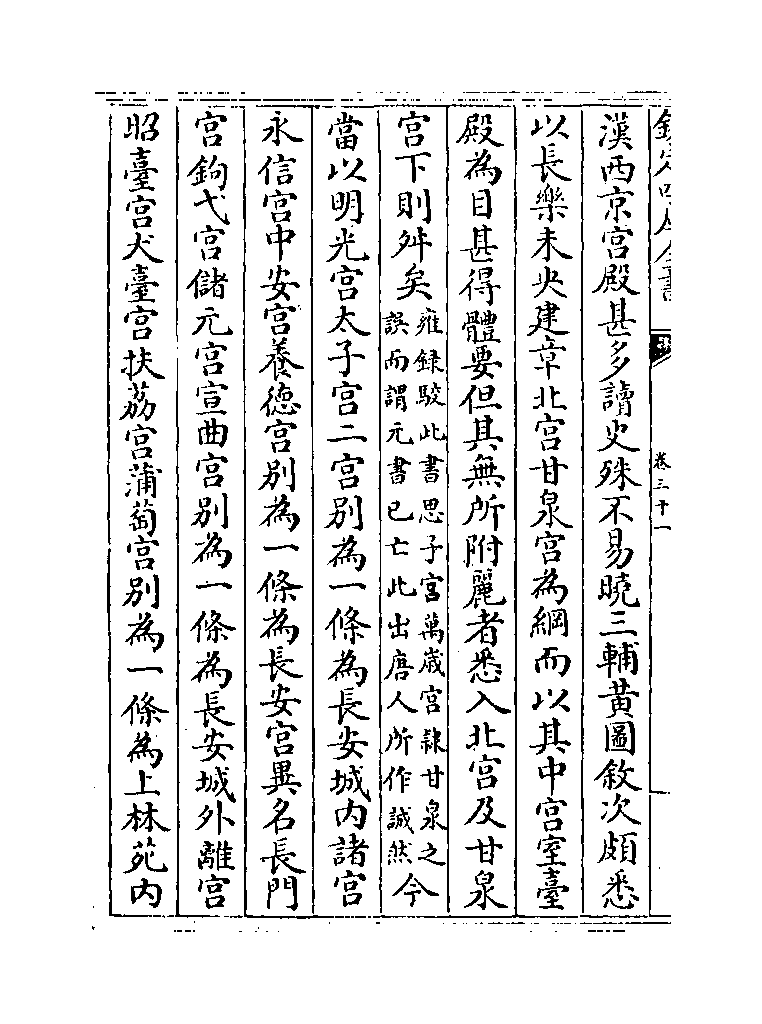 欽定四庫全書
卷三十一
漢西京宫殿甚多讀史殊不易曉三輔黄圖敘次頗悉
以長樂未央建章北宫甘泉宫為綱而以其中宫室臺
殿為目甚得體要但其無所附麗者悉入北宫及甘泉
宫下則舛矣雍録駮此書思子宫萬歲宫隸甘泉之誤而謂元書已亡此出唐人所作誠然今
當以明光宫太子宫二宫别為一條為長安城内諸宫
永信宫中安宫養徳宫别為一條為長安宫異名長門
宫鉤弋宫儲元宫宣曲宫别為一條為長安城外離宫
昭臺宫犬臺宫扶荔宫蒲萄宫别為一條為上林苑内